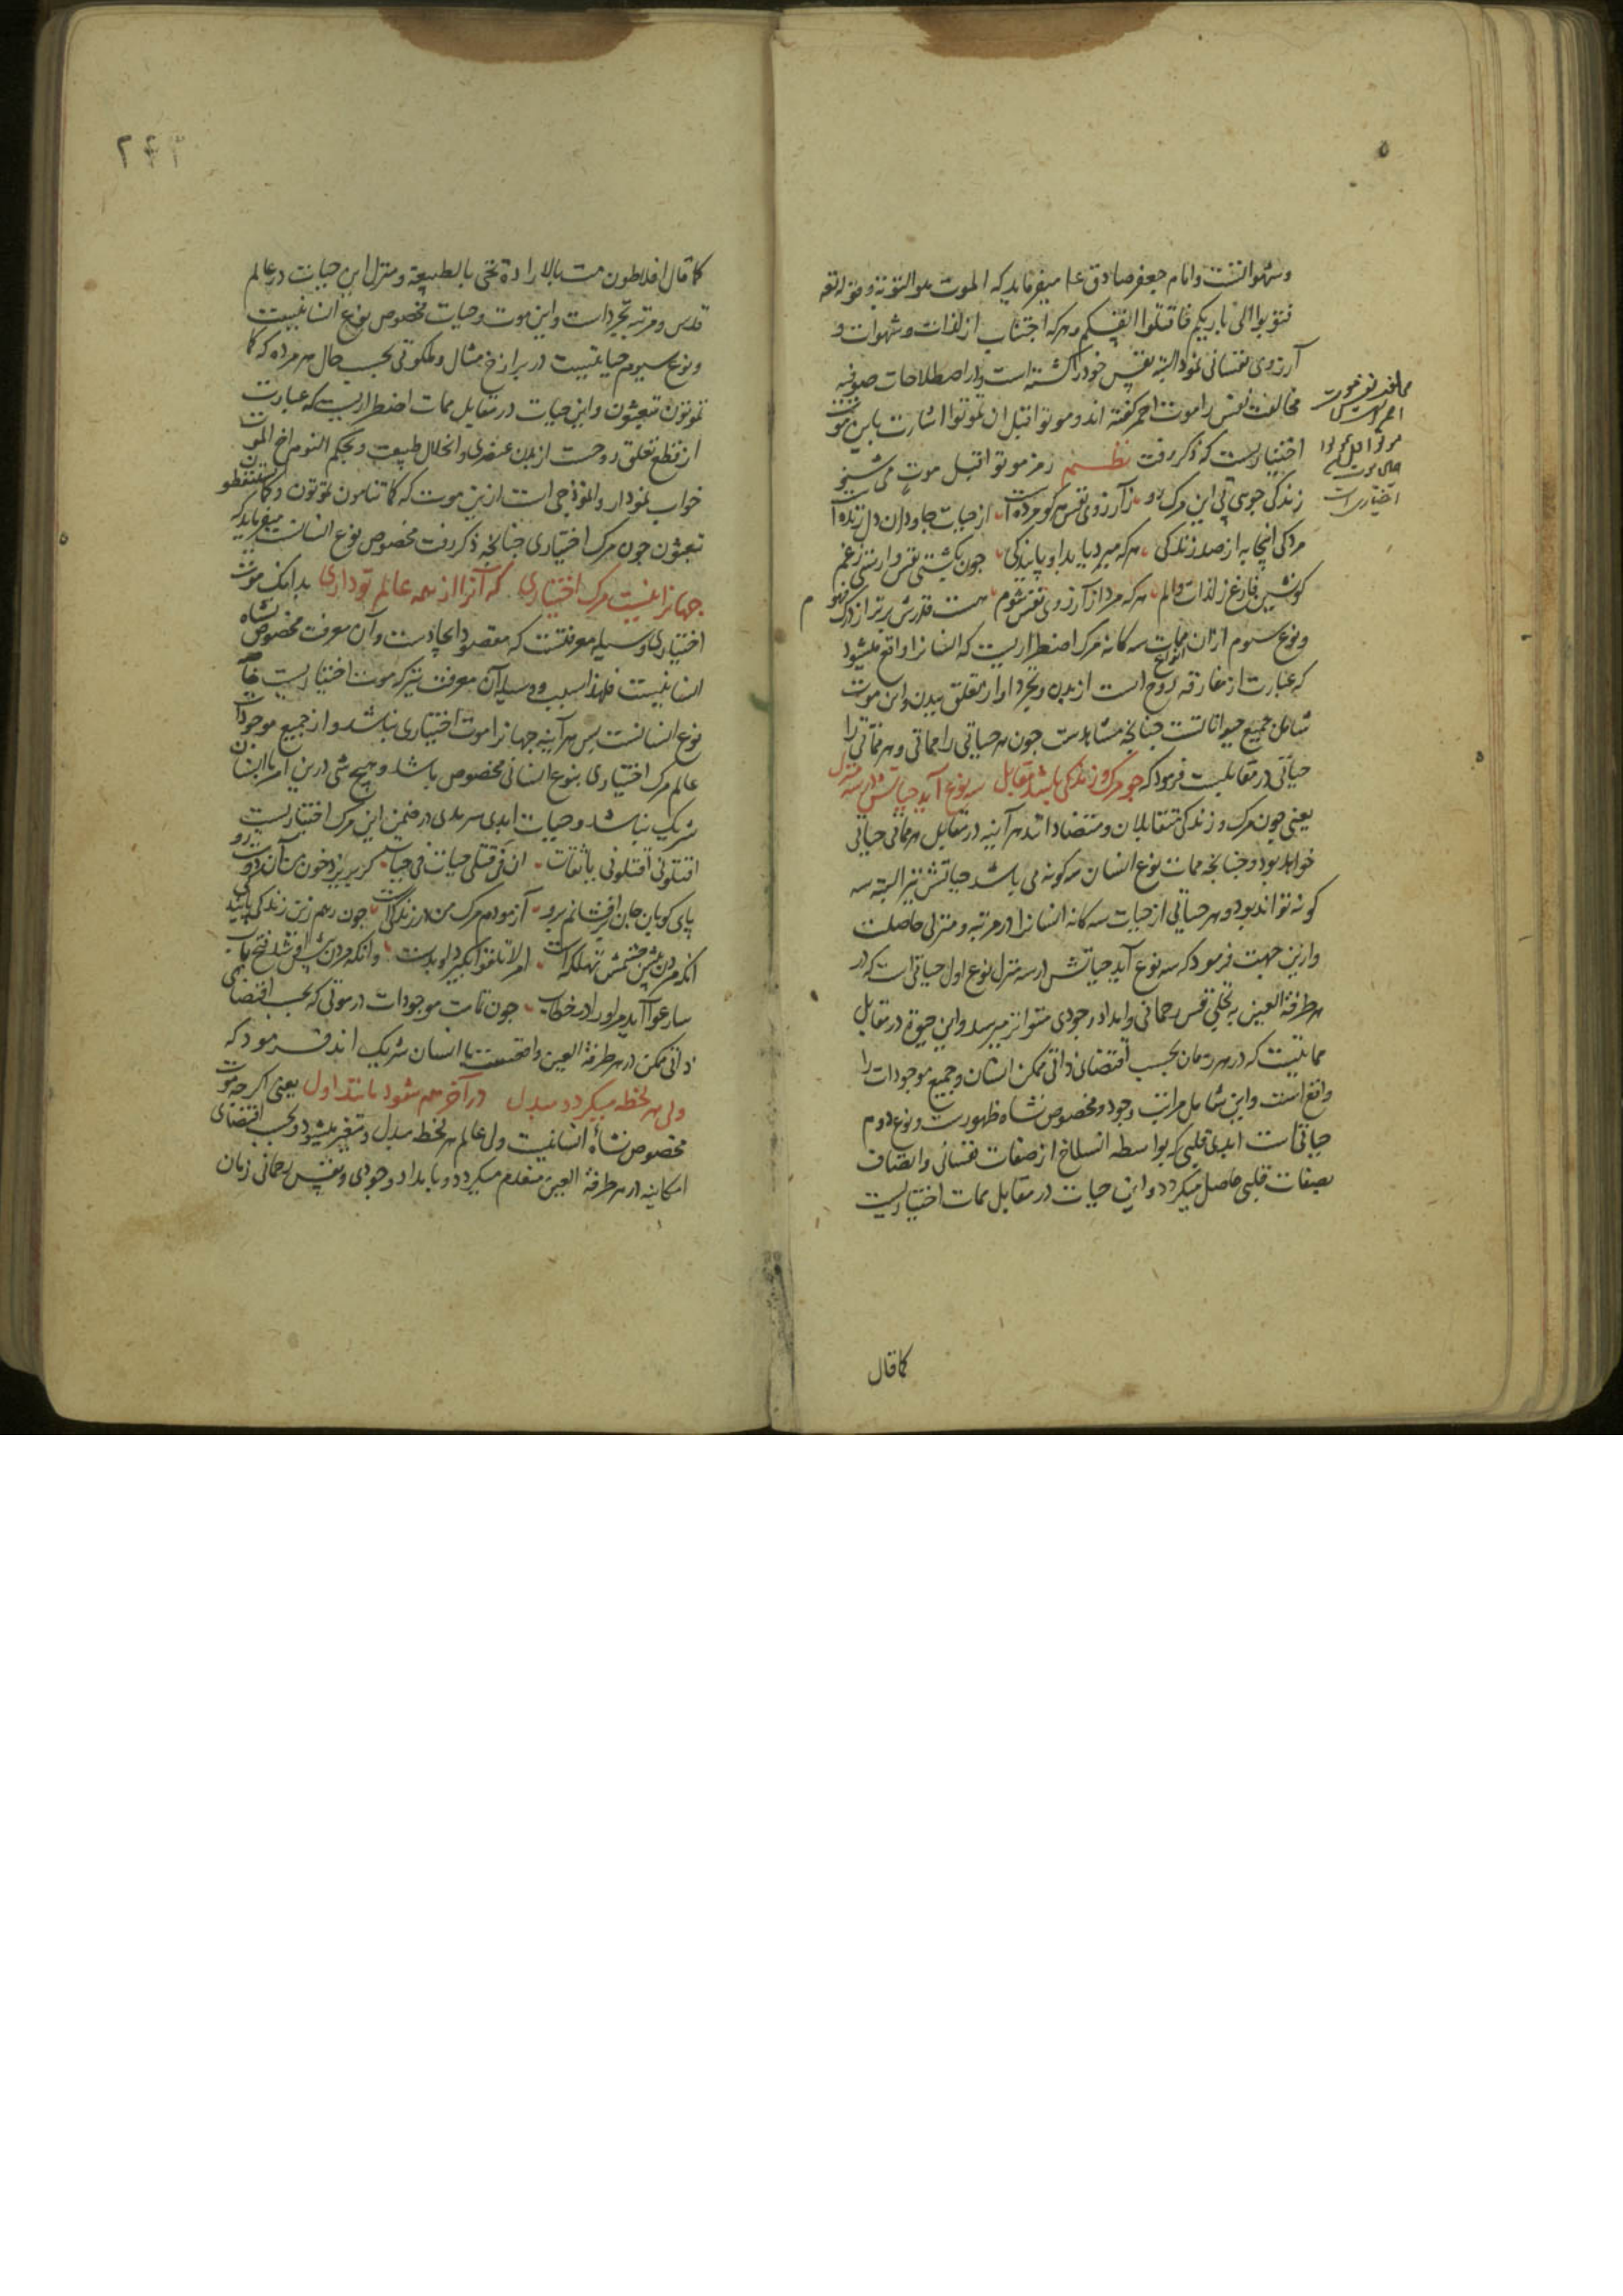 وشهوا تست وامام جعفر صادق علم میفرماید که الموت هو التوبة وقوله تعه
فتوبوا الی باریکم فاقتلوا انفسکم هر که اجتناب از لذات و شهوات و
آرزوی نفسانی نمود البته نفس خود را کشته است و در اصطلاحات صوفیه
مخالفت نفس را موت احمر گفته اند و موتوا قبل ان تموتوا اشارت باین موت
اختیاریست که ذکر رفت نظم رمز موتوا قبل موت می شنو
زندگی جوی پی این مرک رو زآرزوی نفس هر کو مرده است از حیات جاودان دل زنده است
مردکی اینجا به از صد زندکی هر که میرد یابد او پایندکی چون بکشتی نفس وارستی زغم
فارغ ز لذات و الم هر که مرد از آرزوی نفس شوم هست قدرش برتر از درک فهوم
ونوع سیوم از ان انواع ممات سه کانه مرک اضطراریست که انسانرا واقع میشود
که عبارت از مفارقه روح است از بدن و تجرد او از تعلق بیدن و این موت
شامل جمیع حیوانات است چنانچه مشاهدست چون هر حیاتی را مماتی و هر مماتی را
حیاتی در مقابلست فرمود که چو مرک و زندکی باشد مقابل سه نوع آید حیاتش در سه منزل
یعنی چون مرک و زندکی متقابلان و متضادانند هر آینه در مقابل هر مماتی حیاتی
خواهد بود و چنانچه ممات نوع انسان سه کونه می باشد حیاتش نیز البته سه
کونه تواند بود و هر حیاتی از حیات سه کانه انسانرا در مرتبه و منزلی حاصلست
و ازین جهت فرمود که سه نوع آید حیاتش در سه منزل نوع اول حیاتی است که در
هر طرفة العین به تجلی نفس رحمانی و امداد وجودی متواتر میرسد و این حیوة در مقابل
مماتیست که در هر زمان بحسب اقتضای ذاتی ممکن انسان و جمیع موجودات را
واقع است و این شامل مراتب وجود و مخصوص نشاه ظهورست و نوع دوم
حیاتی است ابدی قلبی که بواسطه انسلاخ از صفات نفسانی و اتصاف
بصفات قلبی حاصل میکردد و این حیات در مقابل ممات اختیاریست
کما قال
کما قال افلاطون مت بالارادة تحی بالطبیعة و منزل این حیات در عالم
قدس و مرتبه تجرد است و این موت و حیات مخصوص نوع انسانیست
ونوع سیوم حیاتیست در برازخ مثال و ملکوتی بحسب حال هر مرده که کما
تموتون تبعثون و این حیات در مقابل ممات اضطراریست که عبارت
از قطع تعلق روحست از بدن عنصری و انحلال طبیعت و بحکم النوم اخ الموت
خواب نمودار و انموذجی است ازین موت که کما تنامون تموتون و کما تستیقظون
تبعثون چون مرک اختیاری چنانچه ذکر رفت مخصوص نوع انسانست میفرماید که
جهانرا نیست مرک اختیاری که آنرا از همه عالم تو داری بدانک موت
اختیاری وسیله معرفتست که مقصود ایجادست و آن معرفت مخصوص نشاه
انسانیست فلهذا سبب و وسیله آن معرفت نیز که موت اختیاریست خاصه
نوع انسانست پس هر آینه جهانرا موت اختیاری نباشد و از جمیع موجودات
عالم مرک اختیاری بنوع انسانی مخصوص باشد و هیچ شی درین امر با انسان
شریک نباشد و حیات ابدی سرمدی در ضمن این مرک اختیاریست
اقتلونی اقتلونی یا ثقات ان فی قتلی حیات فی حیات کر بریزد خون من آن دوست رو
پای کوبان جان برافشانم برو آزمودم مرک من در زندکیست چون رهم زین زندکی پایندکیست
انکه مردن پیش چشمش تهلکه است امر لا تلقوا بکیرد او بدست وانکه مردن پیش او شد فتح باب
سارعوا آید مر او را در خطاب چون تمامت موجودات در موتی که بحسب اقتضای
ذاتی ممکن در هر طرفة العین واقعست با انسان شریک اند فرمود که
ولی هر لحظه میکردد مبدل در آخر هم شود مانند اول یعنی اکر چه موت
مخصوص نشأه انسانیست ولی عالم هر لحظه مبدل و متغیر میشود و بحسب اقتضای
امکانیه در هر طرفة العین منعدم میکردد و بامداد وجودی و نفس رحمانی زمان